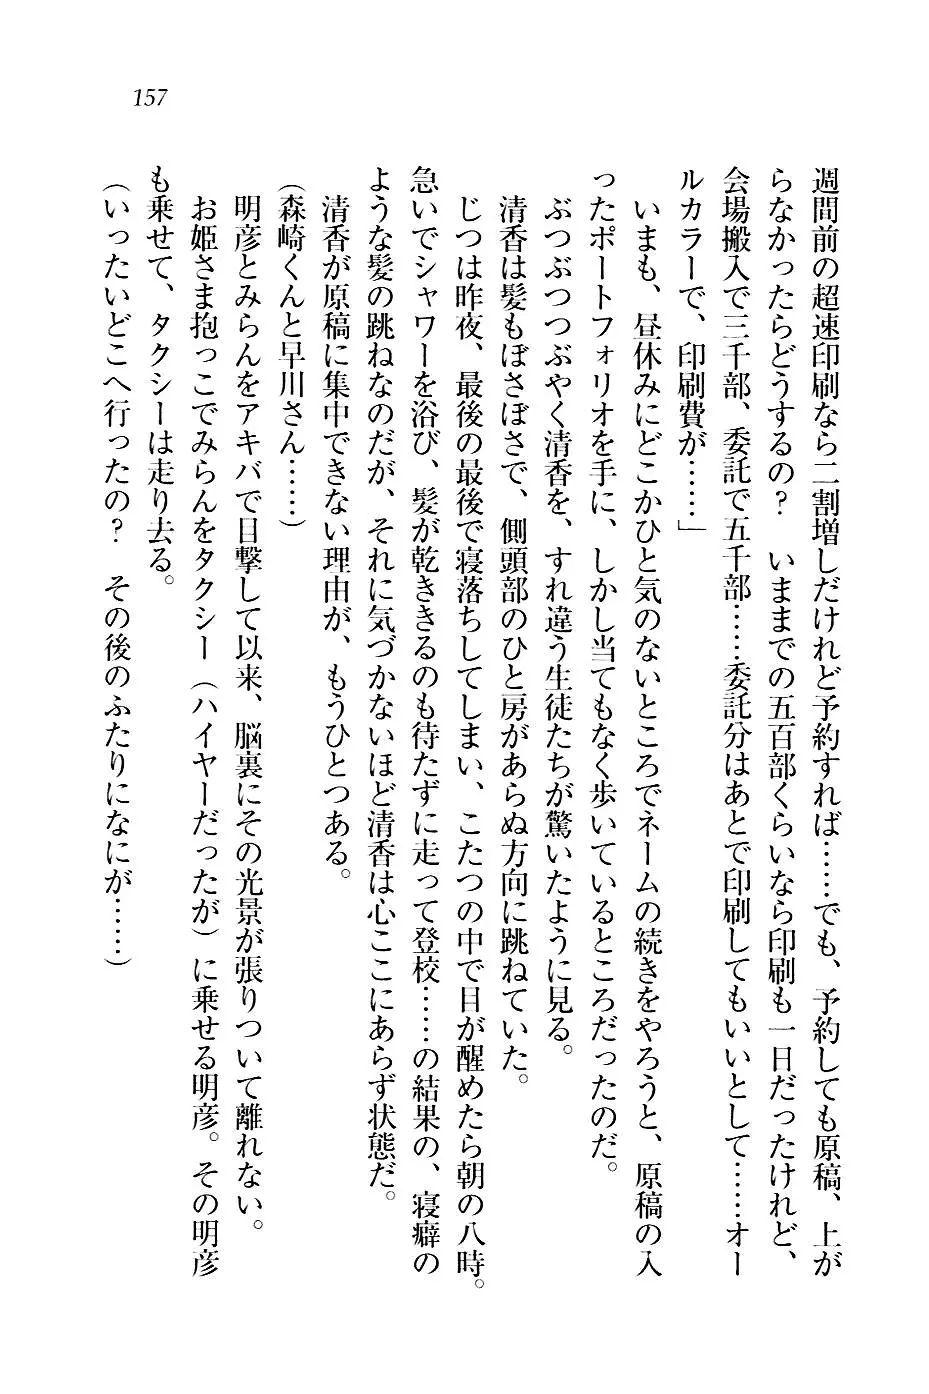 157
週間前の超速印刷なら二割増しだけれど予約すれば……でも、予約しても原稿、上が
らなかったらどうするの？　いままでの五百部くらいなら印刷も一日だったけれど、
会場搬入で三千部、委託で五千部……委託分はあとで印刷してもいいとして……オー
ルカラーで、印刷費が……」
　いまも、昼休みにどこかひと気のないところでネームの続きをやろうと、原稿の入
ったポートフォリオを手に、しかし当てもなく歩いているところだったのだ。
　ぶつぶつつぶやく清香を、すれ違う生徒たちが驚いたように見る。
　清香は髪もぼさぼさで、側頭部のひと房があらぬ方向に跳ねていた。
　じつは昨夜、最後の最後で寝落ちしてしまい、こたつの中で目が醒めたら朝の八時。
急いでシャワーを浴び、髪が乾ききるのも待たずに走って登校……の結果の、寝癖の
ような髪の跳ねなのだが、それに気づかないほど清香は心ここにあらず状態だ。
　清香が原稿に集中できない理由が、もうひとつある。
（森崎くんと早川さん……）
　明彦とみらんをアキバで目撃して以来、脳裏にその光景が張りついて離れない。
　お姫さま抱っこでみらんをタクシー（ハイヤーだったが）に乗せる明彦。その明彦
も乗せて、タクシーは走り去る。
（いったいどこへ行ったの？　その後のふたりになにが……）